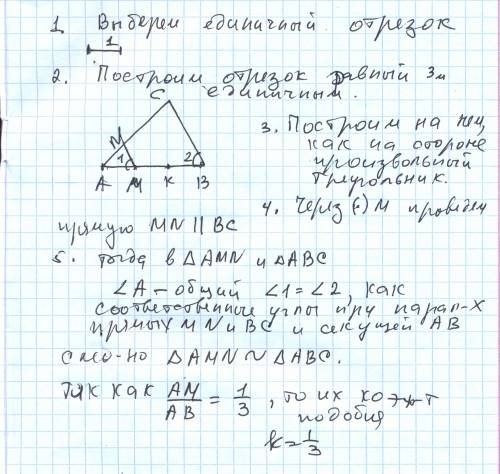 1. Выберем единичный отрезок
1
2. Построим отрезок равный 3м
единичным.
C
N
1
2
A M K B
3. Построим на нем,
как на стороне
произвольный
треугольник.
4. Через (·) M проведем
прямую MN || BC
5. Тогда в △AMN и △ABC
∠A – общий ∠1 = ∠2, как
соответственные углы при парал-х
прямых MN и BC и секущей AB
след-но △AMN ~ △ABC.
Так как AM/AB = 1/3, то их коэ-т
подобия
k = 1/3